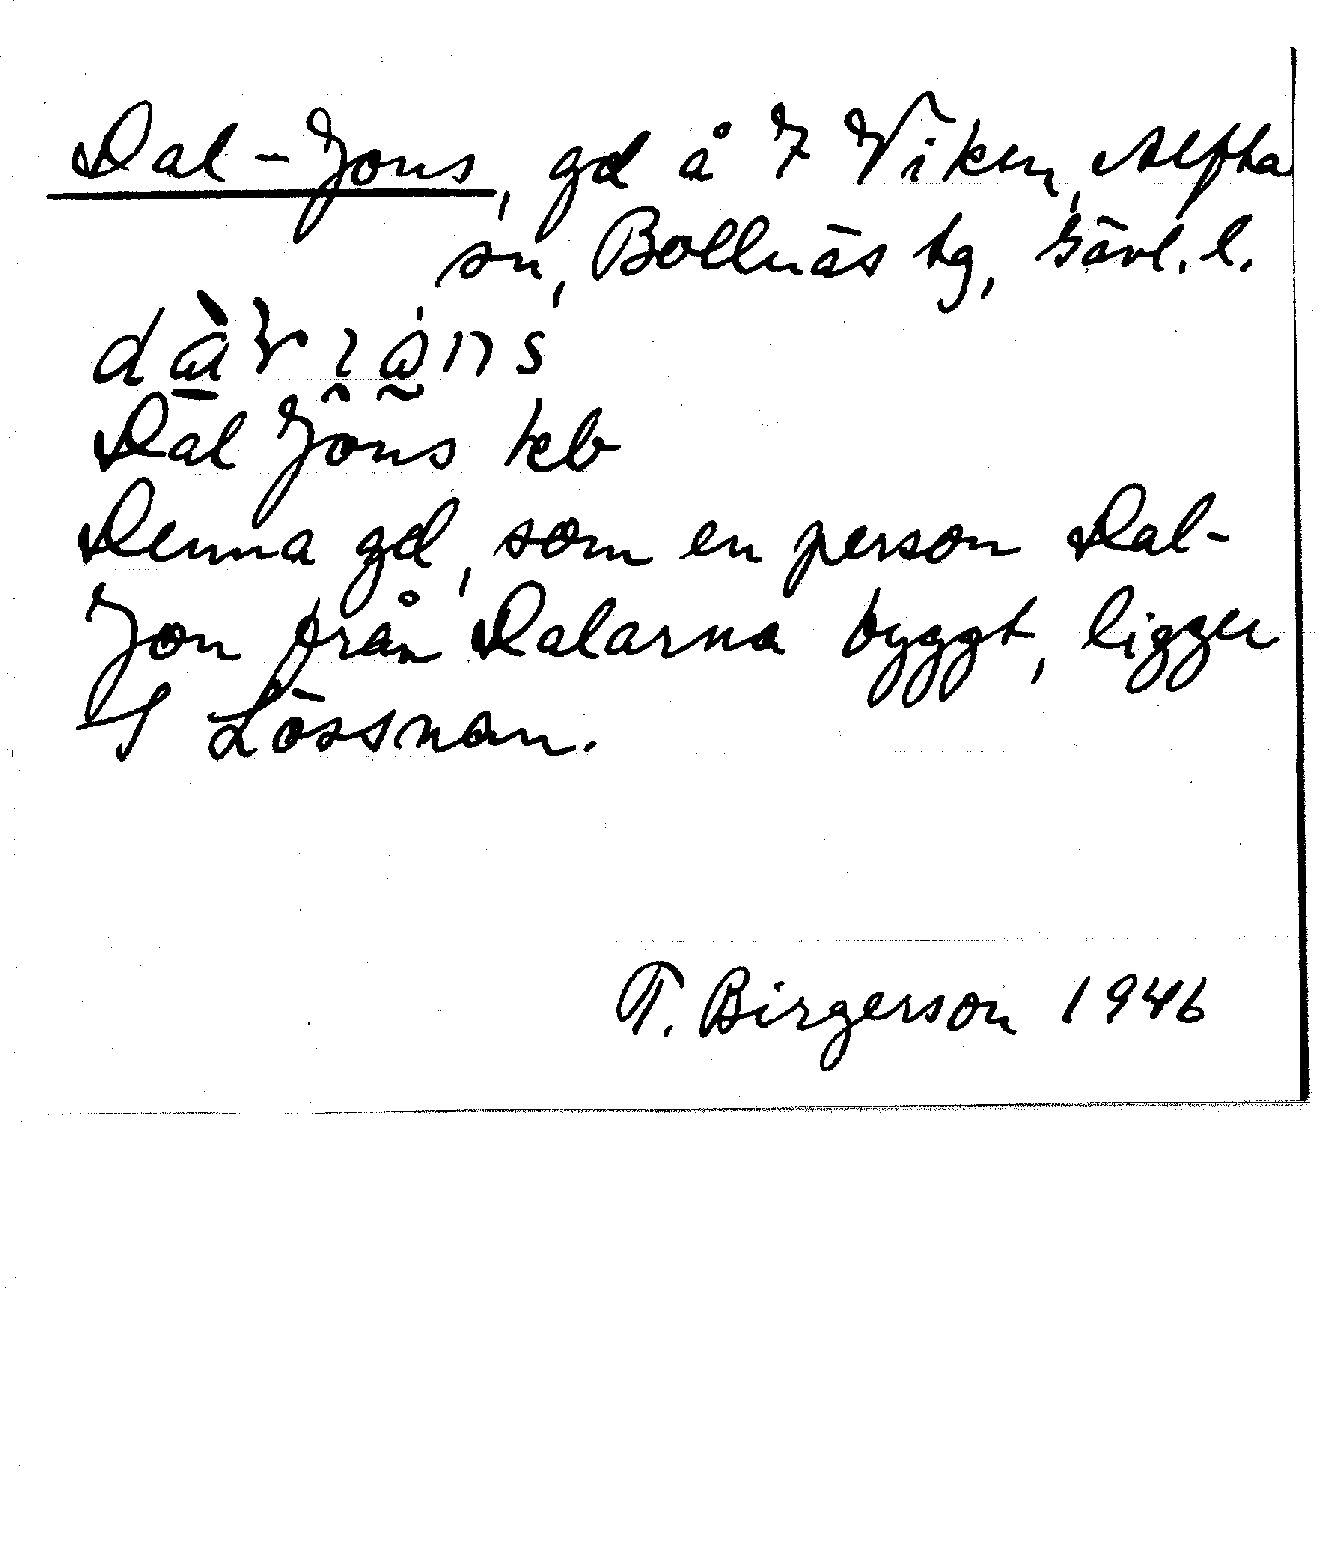 Dal-Jons, gd å 7 Viken, Alfta
sn, Bollnäs tg, Gävl. l.
Dal Jöns teb
Denna gd, som en person Dal-
Jon från Dalarna byggt, ligger
S Lössnan.
T. Birgerson 1946